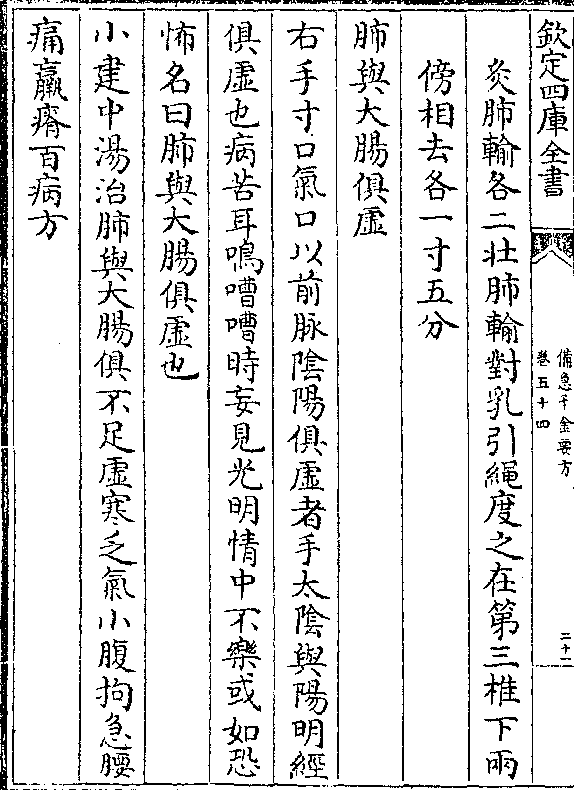 欽定四庫全書
備急千金要方
卷五十四
二十一
灸肺輸各二壯肺輸對乳引繩度之在第三椎下兩
傍相去各一寸五分
肺與大腸俱虛
右手寸口氣口以前脉陰陽俱虛者手太陰與陽明經
俱虛也病苦耳鳴嘈嘈時妄見光明情中不樂或如恐
怖名曰肺與大腸俱虛也
小建中湯治肺與大腸俱不足虛寒乏氣小腹拘急腰
痛羸瘠百病方